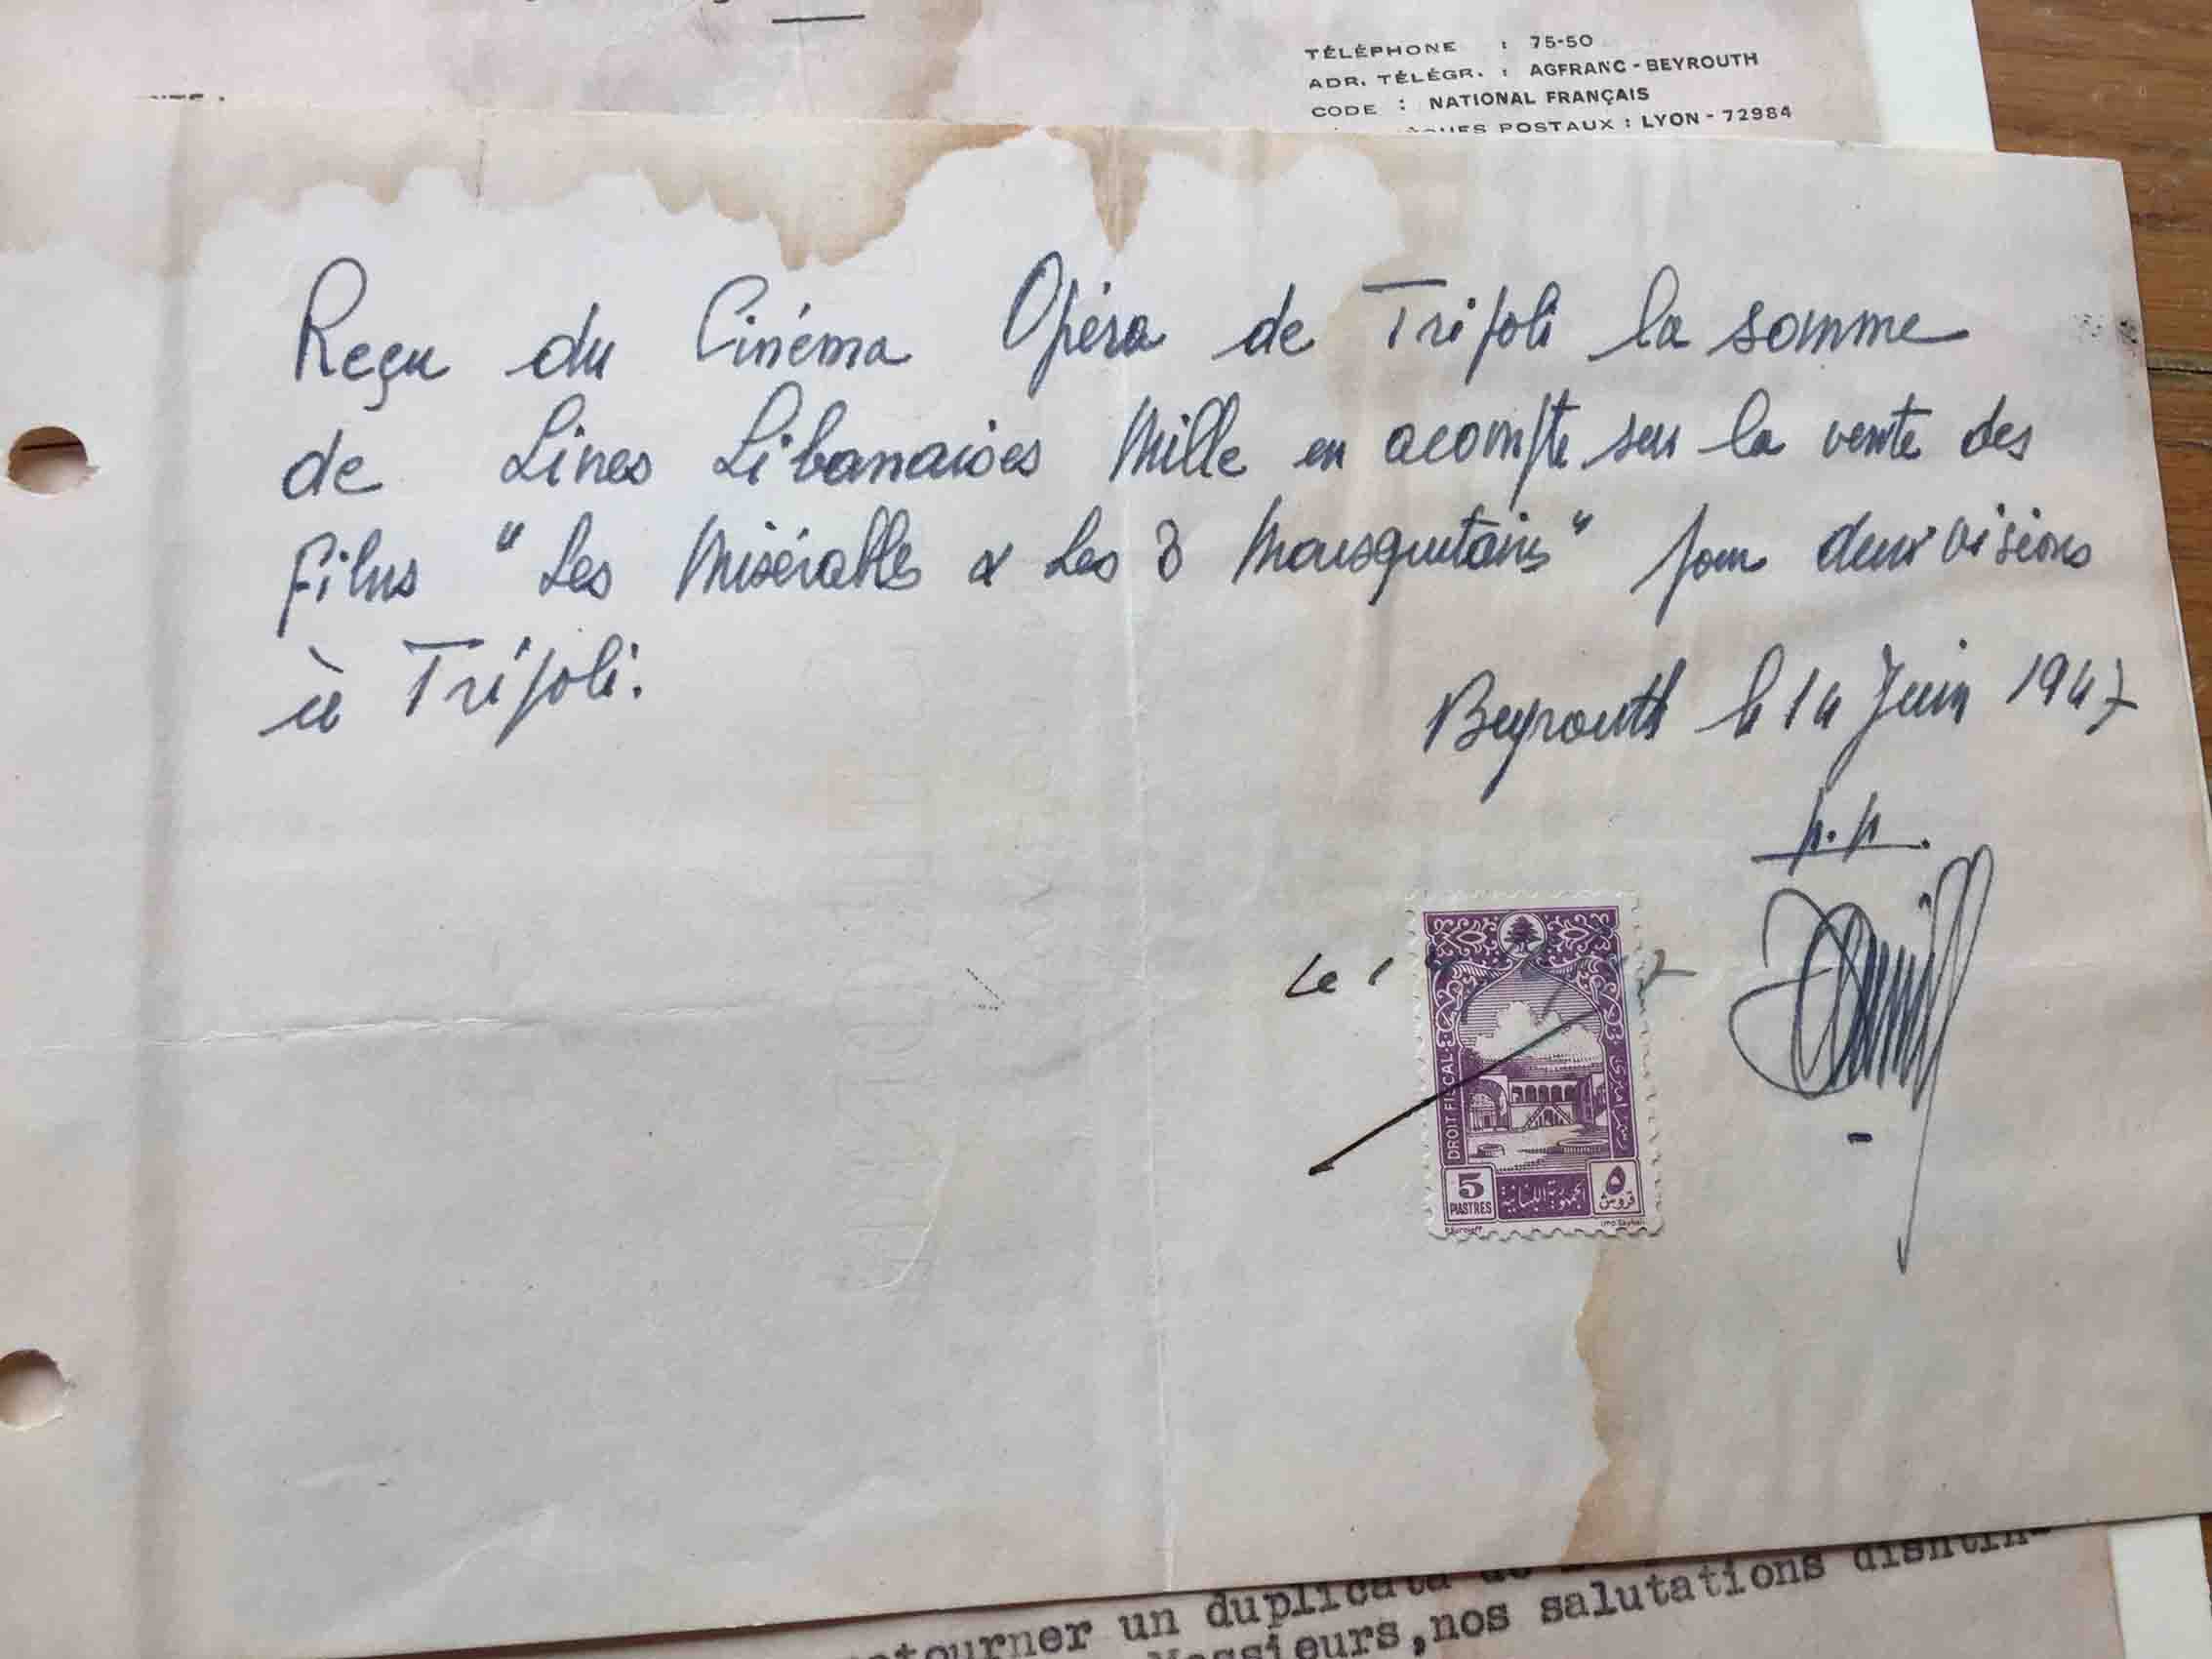 TÉLÉPHONE : 75-50
ADR. TÉLÉGR. : AGFRANC - BEYROUTH
CODE : NATIONAL FRANÇAIS
POSTAUX : LYON - 72984
Reçu du Cinéma Opéra de Tripoli la somme
de Livres Libanaises Mille en acompte sur la vente des
films " Les Misérables & Les 3 Mousquetairs " pour deux visions
à Tripoli.
Beyrouth le 14 Juin 1947
p.p.
Le 1
DROIT FISCAL
5
PIASTRES
الجمهورية اللبنانية
٥
قروش
un duplicata de
Messieurs, nos salutations